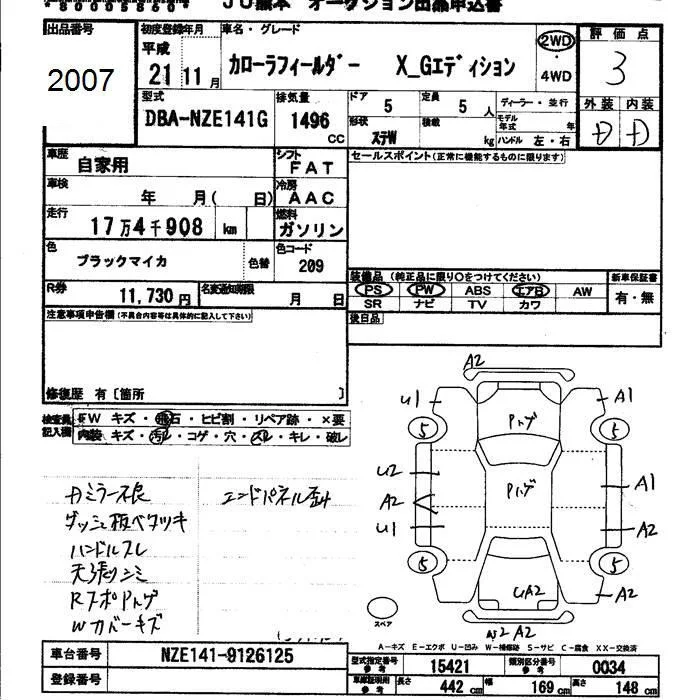 JU熊本 オークション出品申込書
出品番号 初度登録年月 車名・グレード 評価点
2007 平成 21 11月 カローラフィールダー X_Gエディション 2WD ・4WD 3
型式 排気量 ドア 5 定員 5人 ディーラー・並行 外装 内装
DBA-NZE141G 1496 CC 形状 ステW 積載 kg モデル年式 年 ハンドル 左・右 D D
車歴 自家用 シフト FAT セールスポイント(正常に機能するものに限ります)
車検 年 月( 日) 冷房 AAC
走行 17万4千908 km 燃料 ガソリン
色 ブラックマイカ 色替 色コード 209
装備品 (純正品に限り〇をつけてください) 新車保証書
R券 11,730円 名変通知期限 月 日 PS PW ABS エアB AW 有・無
SR ナビ TV カワ
注意事項申告欄(不具合内容等は具体的に記入して下さい) 後日品
修復歴 有〔箇所 〕
検査員記入欄 FW キズ・飛石・ヒビ割・リペア跡・×要
内装 キズ・汚れ・コゲ・穴・スレ・キレ・破レ
A2
U1 A1
Pハゲ
5 5
U2 Pハゲ A1
A2
U1 A2
5 5
UA2 A2
A2
スペア
ダッシュ板ベタツキ エンドパネル歪
ハンドルスレ
天張シミ
RスポPハゲ
Wカバーキズ
A-キズ E-エクボ U-凹み W-補修跡 S-サビ C-腐食 XX-交換済
車台番号 NZE141-9126125 型式指定番号 参考 15421 類別区分番号 参考 0034
登録番号 車庫証明用 参考 長さ 442cm 幅 169cm 高さ 148cm